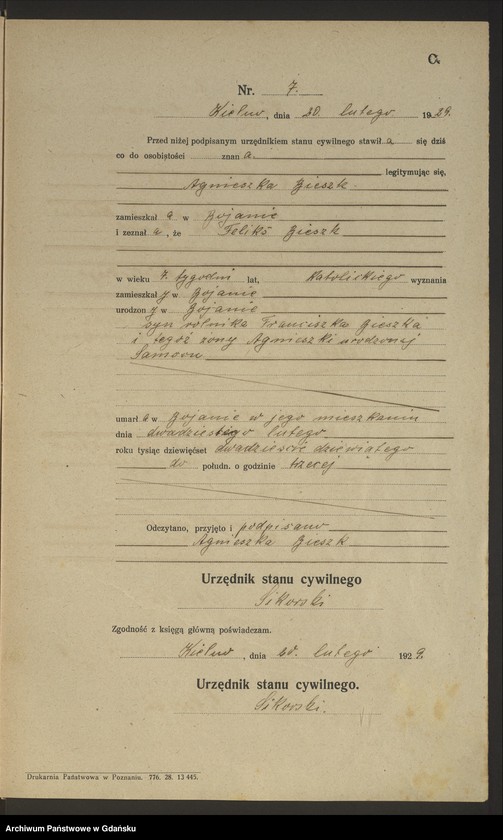 C.
Nr. 7.
Kielno, dnia 20. lutego 1929.
Przed niżej podpisanym urzędnikiem stanu cywilnego stawił a się dziś
co do osobistości znan a.
legitymując się,
Agnieszka Bieszk
zamieszkał a w Bojanie
i zeznał a, że Feliks Bieszk
w wieku 7. tygodni lat, katolickiego wyznania
zamieszkał y w Bojanie
urodzon y w Bojanie
syn rolnika Franciszka Bieszka
i tegoż żony Agnieszki urodzonej
umarł w Bojanie w jego mieszkaniu
dnia dwudziestego lutego
roku tysiąc dziewięćset dwadzieścia dziewiątego
do połudn. o godzinie trzeciej
Odczytano, przyjęto i podpisano
Agnieszka Bieszk
Urzędnik stanu cywilnego
Sikorski
Zgodność z księgą główną poświadczam.
Kielno, dnia 20. lutego 1929.
Urzędnik stanu cywilnego.
Sikorski.
Drukarnia Państwowa w Poznaniu. 776. 28. 13 445.
Archiwum Państwowe w Gdańsku